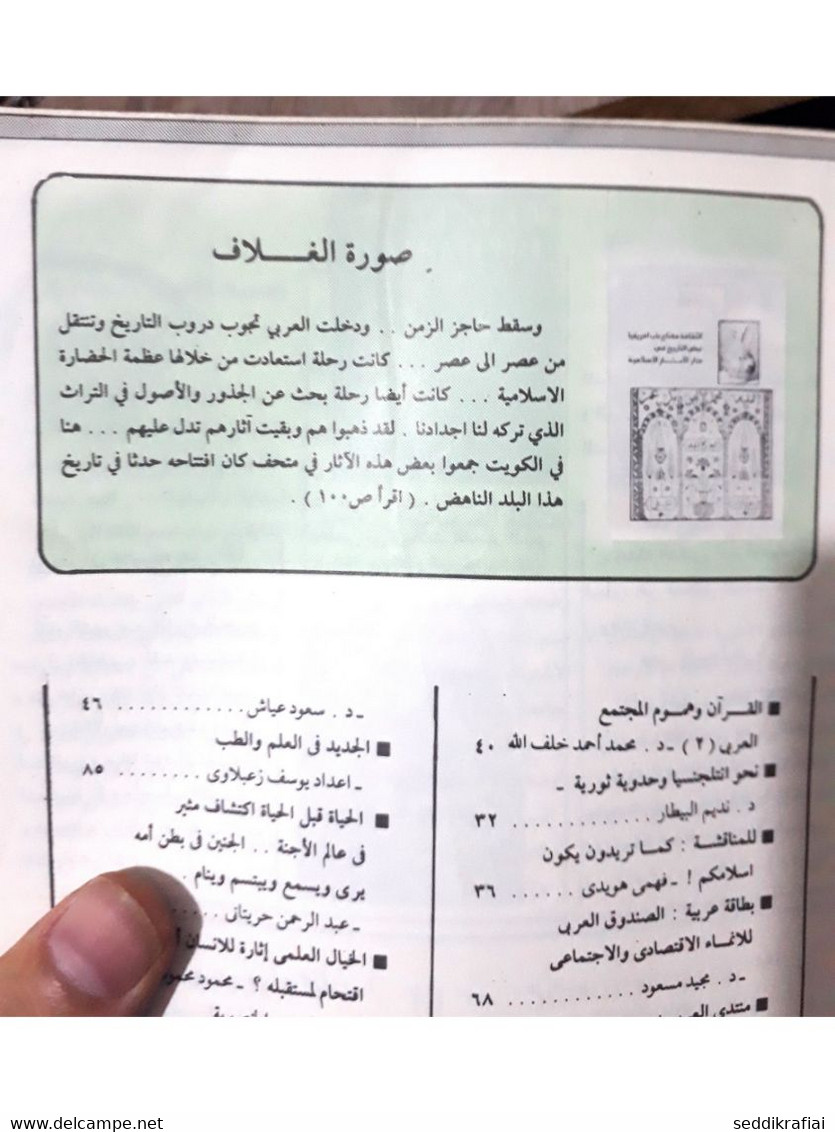 صورة الغـــلاف
وسقط حاجز الزمن .. ودخلت العربي تجوب دروب التاريخ وتنتقل
من عصر الى عصر ... كانت رحلة استعادت من خلالها عظمة الحضارة
الاسلامية ... كانت أيضا رحلة بحث عن الجذور والأصول في التراث
الذي تركه لنا اجدادنا . لقد ذهبوا هم وبقيت آثارهم تدل عليهم ... هنا
في الكويت جمعوا بعض هذه الآثار في متحف كان افتتاحه حدثا في تاريخ
هذا البلد الناهض . ( اقرأ ص ١٠٠ ) .
دار الآثار الاسلامية
■ القـرآن وهموم المجتمع
العربي (٢) ـ د . محمد أحمد خلف الله ٤٠
■ نحو انتلجنسيا وحدوية ثورية ـ
د . نديم البيطار ............. ٣٢
■ للمناقشة : كما تريدون يكون
اسلامكم ! ـ فهمى هويدى ...... ٣٦
■ بطاقة عربية : الصندوق العربي
للانماء الاقتصادى والاجتماعى
ـ د . مجيد مسعود ............ ٦٨
■ منتدى
ـ د . سعود عياش ............. ٤٦
■ الجديد فى العلم والطب
ـ اعداد يوسف زعبلاوى ........ ٨٥
■ الحياة قبل الحياة اكتشاف مثير
فى عالم الأجنة .. الجنين فى بطن أمه
يرى ويسمع ويبتسم وينام .
ـ عبد الرحمن حريتانى .....
■ الخيال العلمى إثارة للانسان
اقتحام لمستقبله ؟ ـ محمود
seddikrafiai